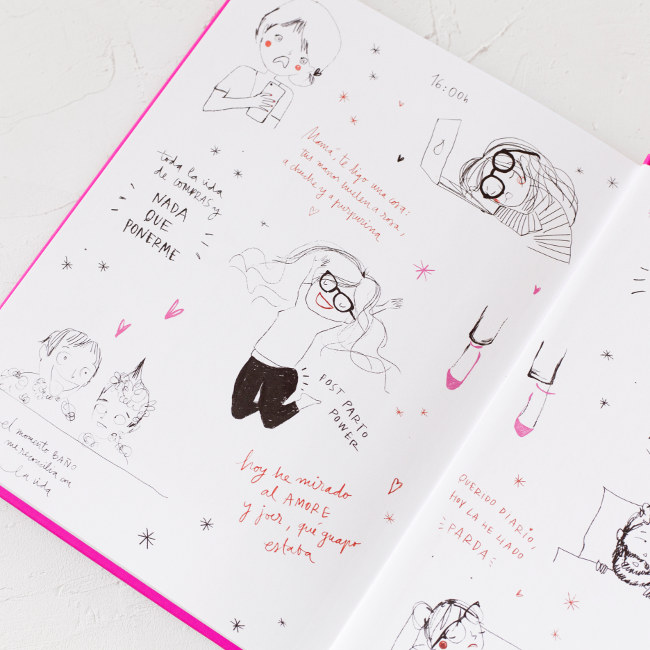 16:00h
Mamá, te digo una cosa:
tus manos huelen a rosa,
a chuche y a purpurina
toda la vida
de COMPRAS y
NADA
QUE
PONERME
POST PARTO
POWER
el momento BAÑO
me reconcilia con
la vida
hoy he mirado
al AMORE
y joer, qué guapo
estaba
QUERIDO DIARIO,
HOY LA HE LIADO
PARDA